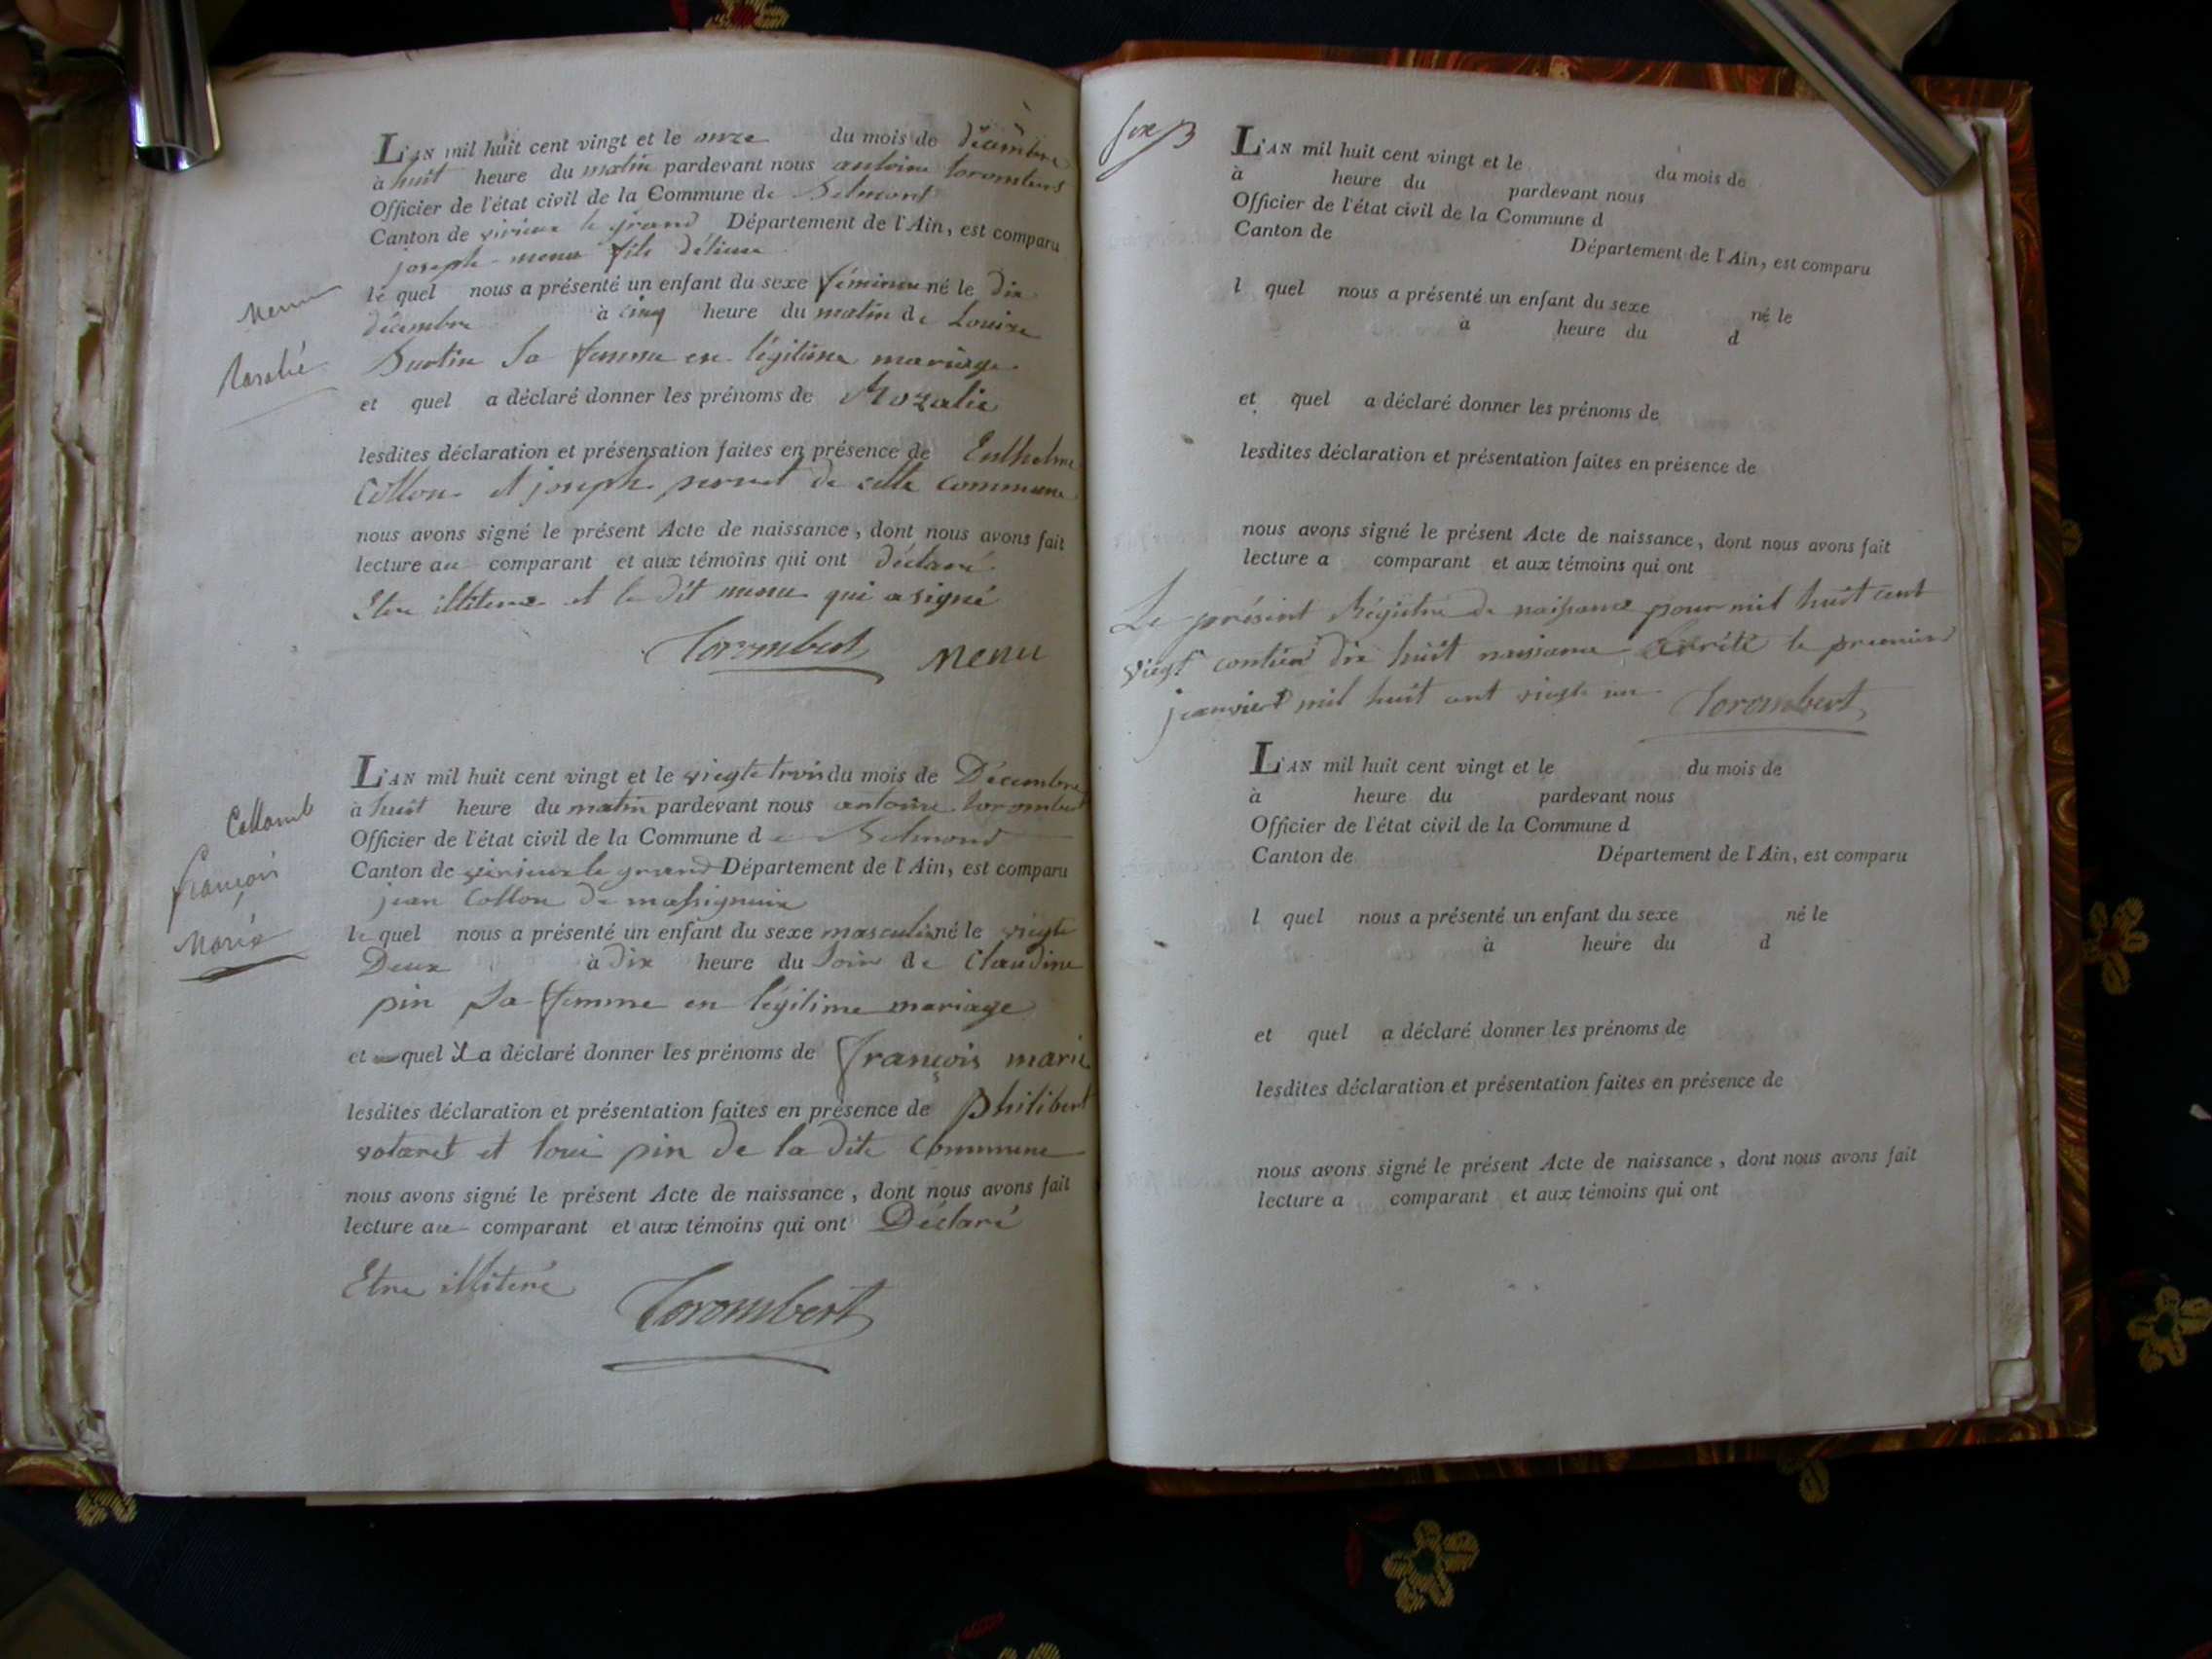 L'AN mil huit cent vingt et le onze du mois de décembre
à huit heure du matin pardevant nous antoine
Officier de l'état civil de la Commune de Belmont
Canton de virieux le grand Département de l'Ain, est comparu
joseph menu fils
le quel nous a présenté un enfant du sexe féminin né le dix
décembre à cinq heure du matin de Louise
sa femme en légitime mariage
et quel a déclaré donner les prénoms de Rozalie
lesdites déclaration et présensation faites en présence de
Collon et joseph de cette commune
nous avons signé le présent Acte de naissance, dont nous avons fait
lecture au comparant et aux témoins qui ont déclaré
Etre et le dit menu qui a signé
Torombert Menu
Menu
L'AN mil huit cent vingt et le viegte trois du mois de Décembre
à huit heure du matin pardevant nous antoine torombert
Officier de l'état civil de la Commune de Belmond
Canton de virieux le grand Département de l'Ain, est comparu
jean Collon de massignieu
le quel nous a présenté un enfant du sexe masculin né le viegte
Deux à dix heure du Soir de Claudine
pin Sa femme en légitime mariage
et quel il a déclaré donner les prénoms de françois marie
lesdites déclaration et présentation faites en présence de philibert
votaret et loui pin de la dite Commune
nous avons signé le présent Acte de naissance, dont nous avons fait
lecture au comparant et aux témoins qui ont Déclaré
Etre illiteré
Torombert
Collomb
françois
Marie
L'AN mil huit cent vingt et le du mois de
à heure du pardevant nous
Officier de l'état civil de la Commune d
Canton de Département de l'Ain, est comparu
l quel nous a présenté un enfant du sexe né le
à heure du d
et quel a déclaré donner les prénoms de
lesdites déclaration et présentation faites en présence de
nous avons signé le présent Acte de naissance, dont nous avons fait
lecture a comparant et aux témoins qui ont
Le présent Régistre de naissance pour mil huit cent
viegt contien dix huit naissance arrété le premier
janvier mil huit cent viegte un Torombert
L'AN mil huit cent vingt et le du mois de
à heure du pardevant nous
Officier de l'état civil de la Commune d
Canton de Département de l'Ain, est comparu
l quel nous a présenté un enfant du sexe né le
à heure du d
et quel a déclaré donner les prénoms de
lesdites déclaration et présentation faites en présence de
nous avons signé le présent Acte de naissance, dont nous avons fait
lecture a comparant et aux témoins qui ont